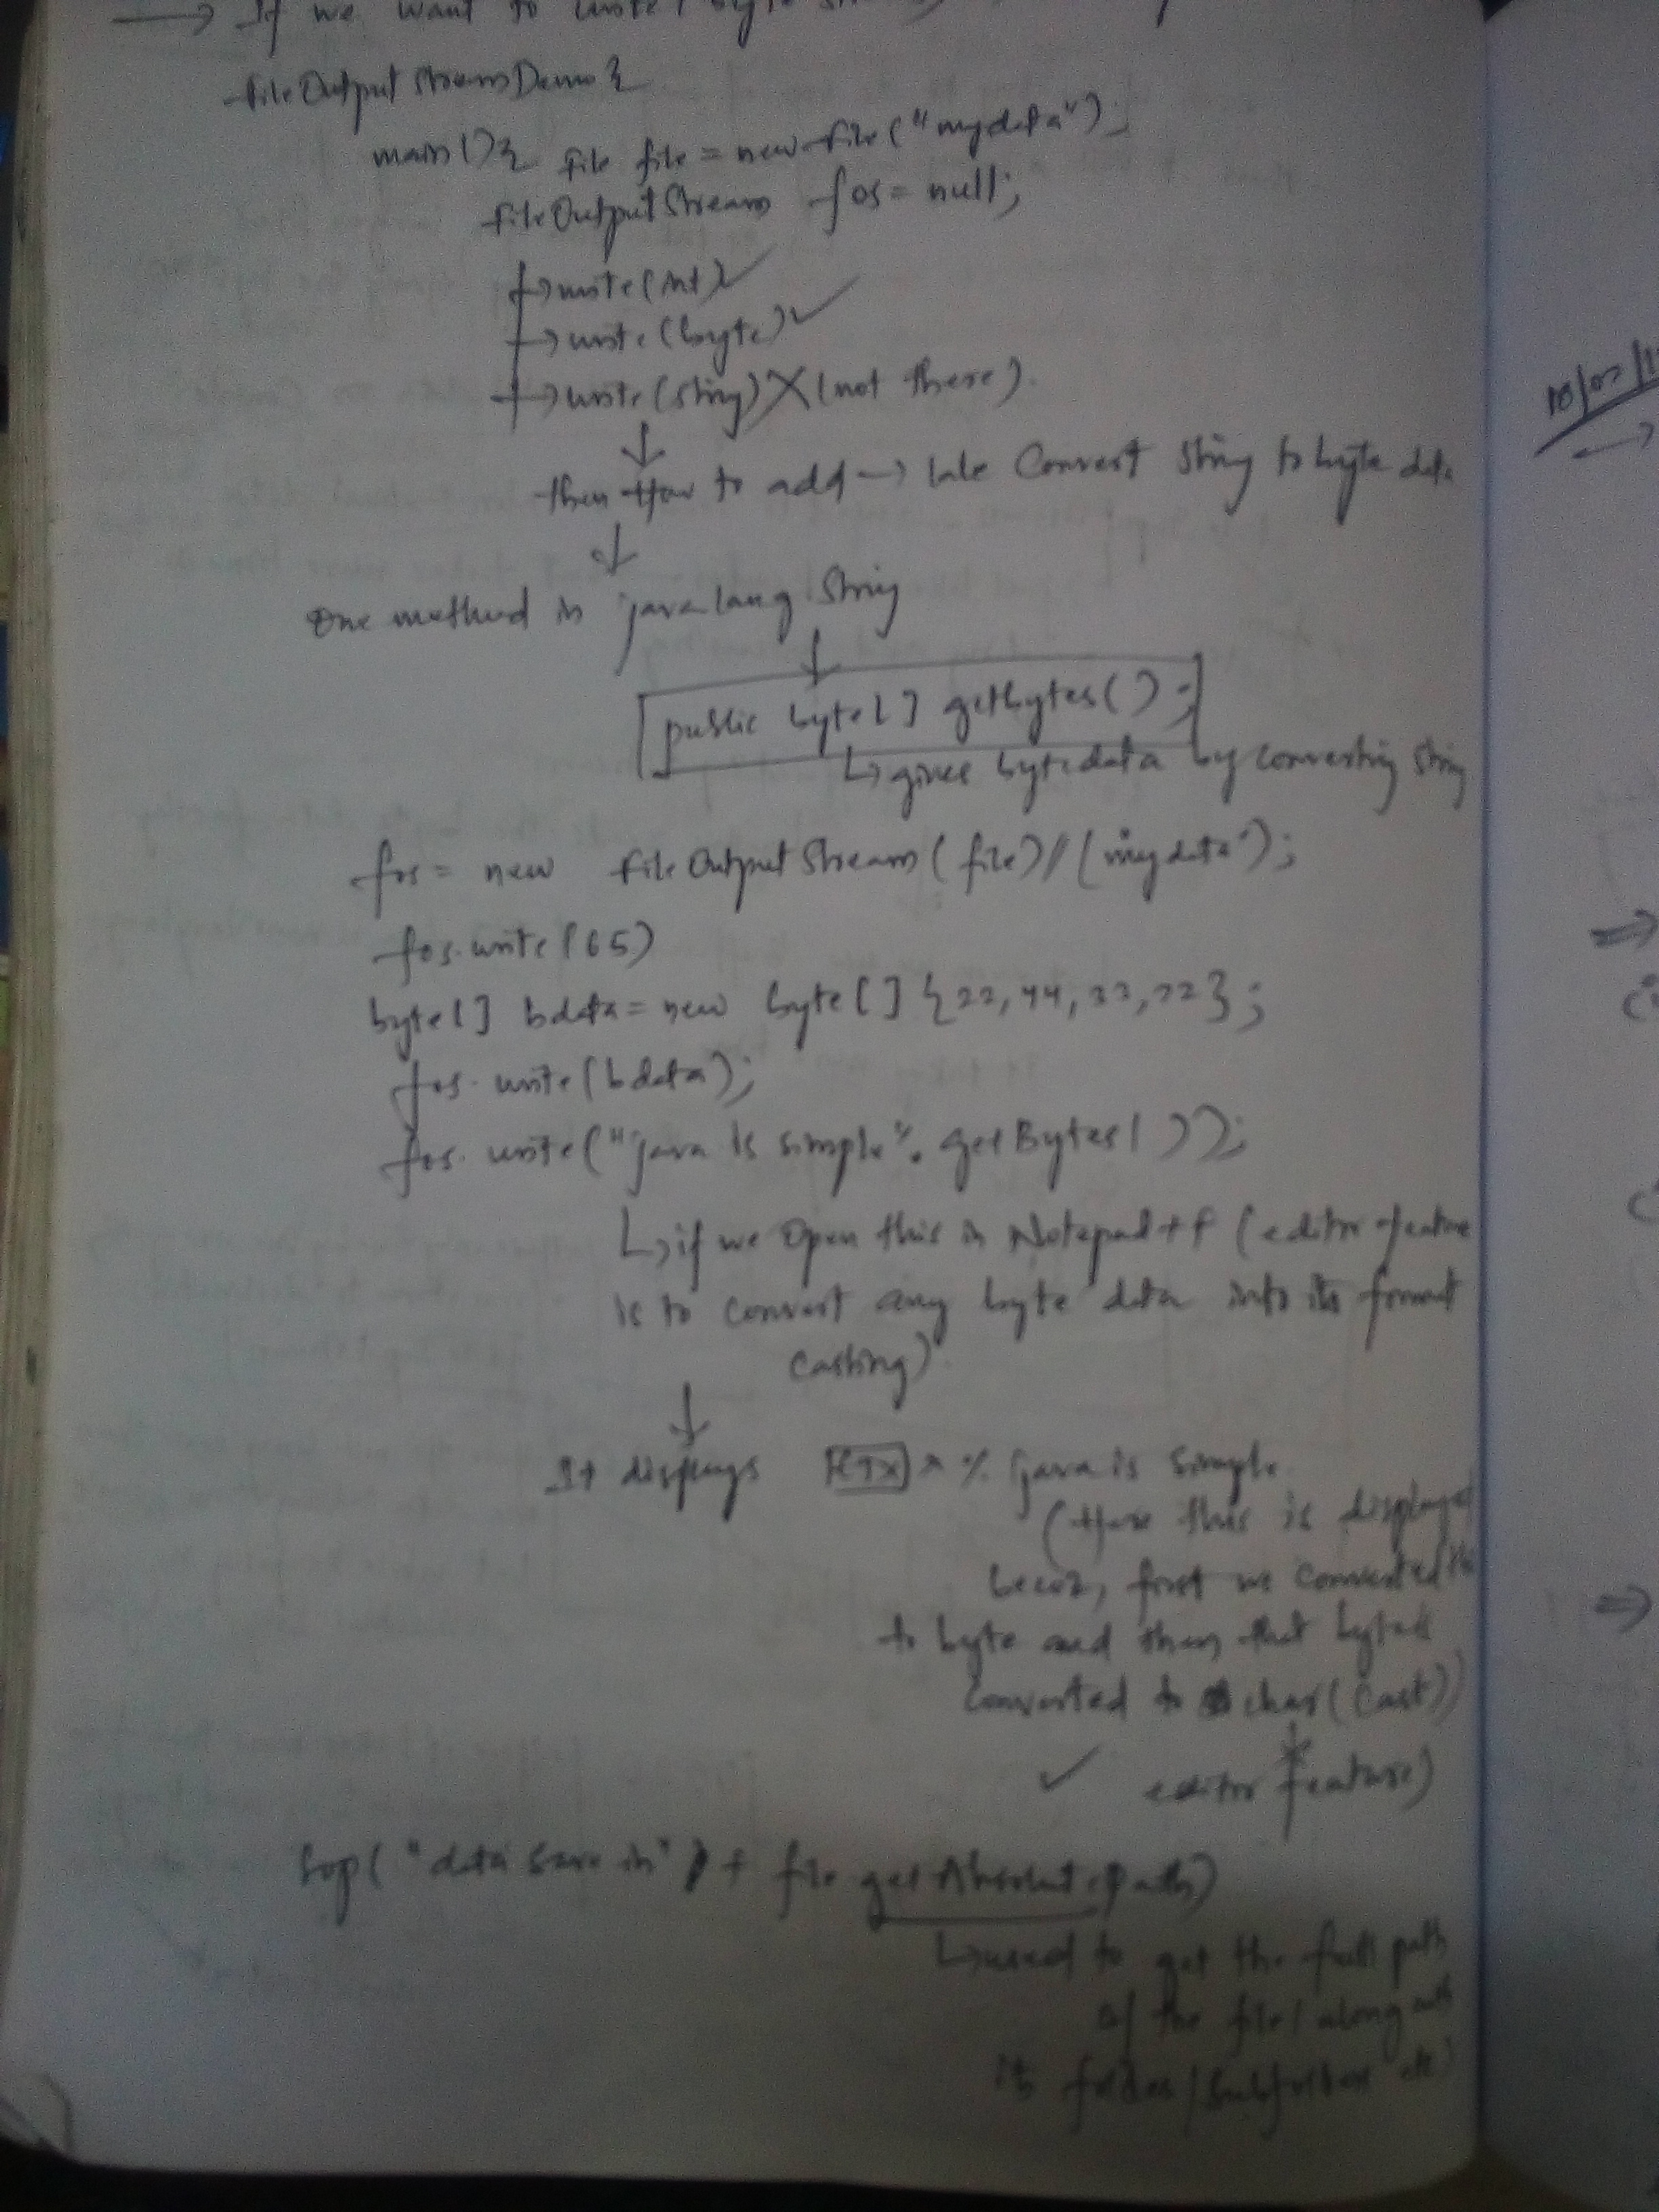 → If we want to write (byte
FileOutputStreamDemo {
main() { File file = new File("mydata");
FileOutputStream fos = null;
→ write(int) ✓
→ write(byte) ✓
→ write(string) X (not there).
↓
then How to add → Convert String to byte data
↓
One method in java lang String
↓
public byte[] getbytes();
↳ gives bytedata by converting String
fos = new FileOutputStream(file) // ("mydata");
fos.write(65)
byte[] bdata = new byte[] {22, 44, 33, 22};
fos.write(bdata);
fos.write("java is simple".getBytes());
↳ if we Open this in Notepad++ (editor feature
is to convert any byte data into its format
casting)
↓
It displays % java is simple
(Here this is displayed
becoz, first we converted
to byte and then that byte
converted to char(cast))
✓ editor feature)
Sop("data save in" + file getAbsolutePath)
↳ used to get the full path
of the file/along with
its folder/subfolder etc)
10/02/1
→
⇒
⇒